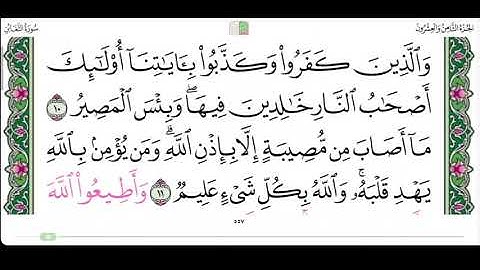 سُورَةُ التَّغَابُنِ الجُزْءُ الثَّامِنُ وَالعِشْرُونَ
وَٱلَّذِينَ كَفَرُوا۟ وَكَذَّبُوا۟ بِـَٔايَٰتِنَآ أُو۟لَٰٓئِكَ
أَصْحَٰبُ ٱلنَّارِ خَٰلِدِينَ فِيهَا ۖ وَبِئْسَ ٱلْمَصِيرُ ١٠
مَآ أَصَابَ مِن مُّصِيبَةٍ إِلَّا بِإِذْنِ ٱللَّهِ ۗ وَمَن يُؤْمِنۢ بِٱللَّهِ
يَهْدِ قَلْبَهُۥ ۚ وَٱللَّهُ بِكُلِّ شَىْءٍ عَلِيمٌ ١١ وَأَطِيعُوا۟ ٱللَّهَ
٥٥٧